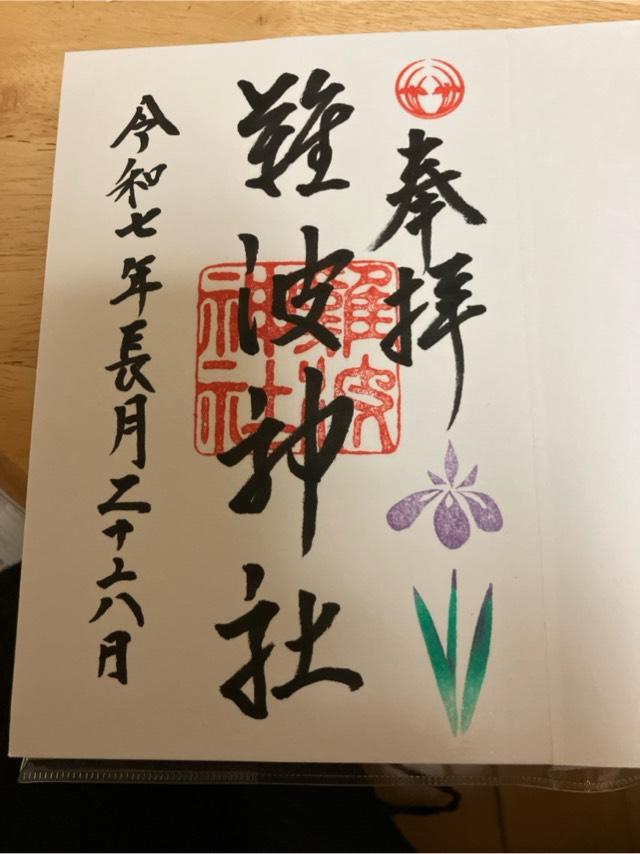 奉拝
難波神社
難波
神社
令和七年長月二十六日